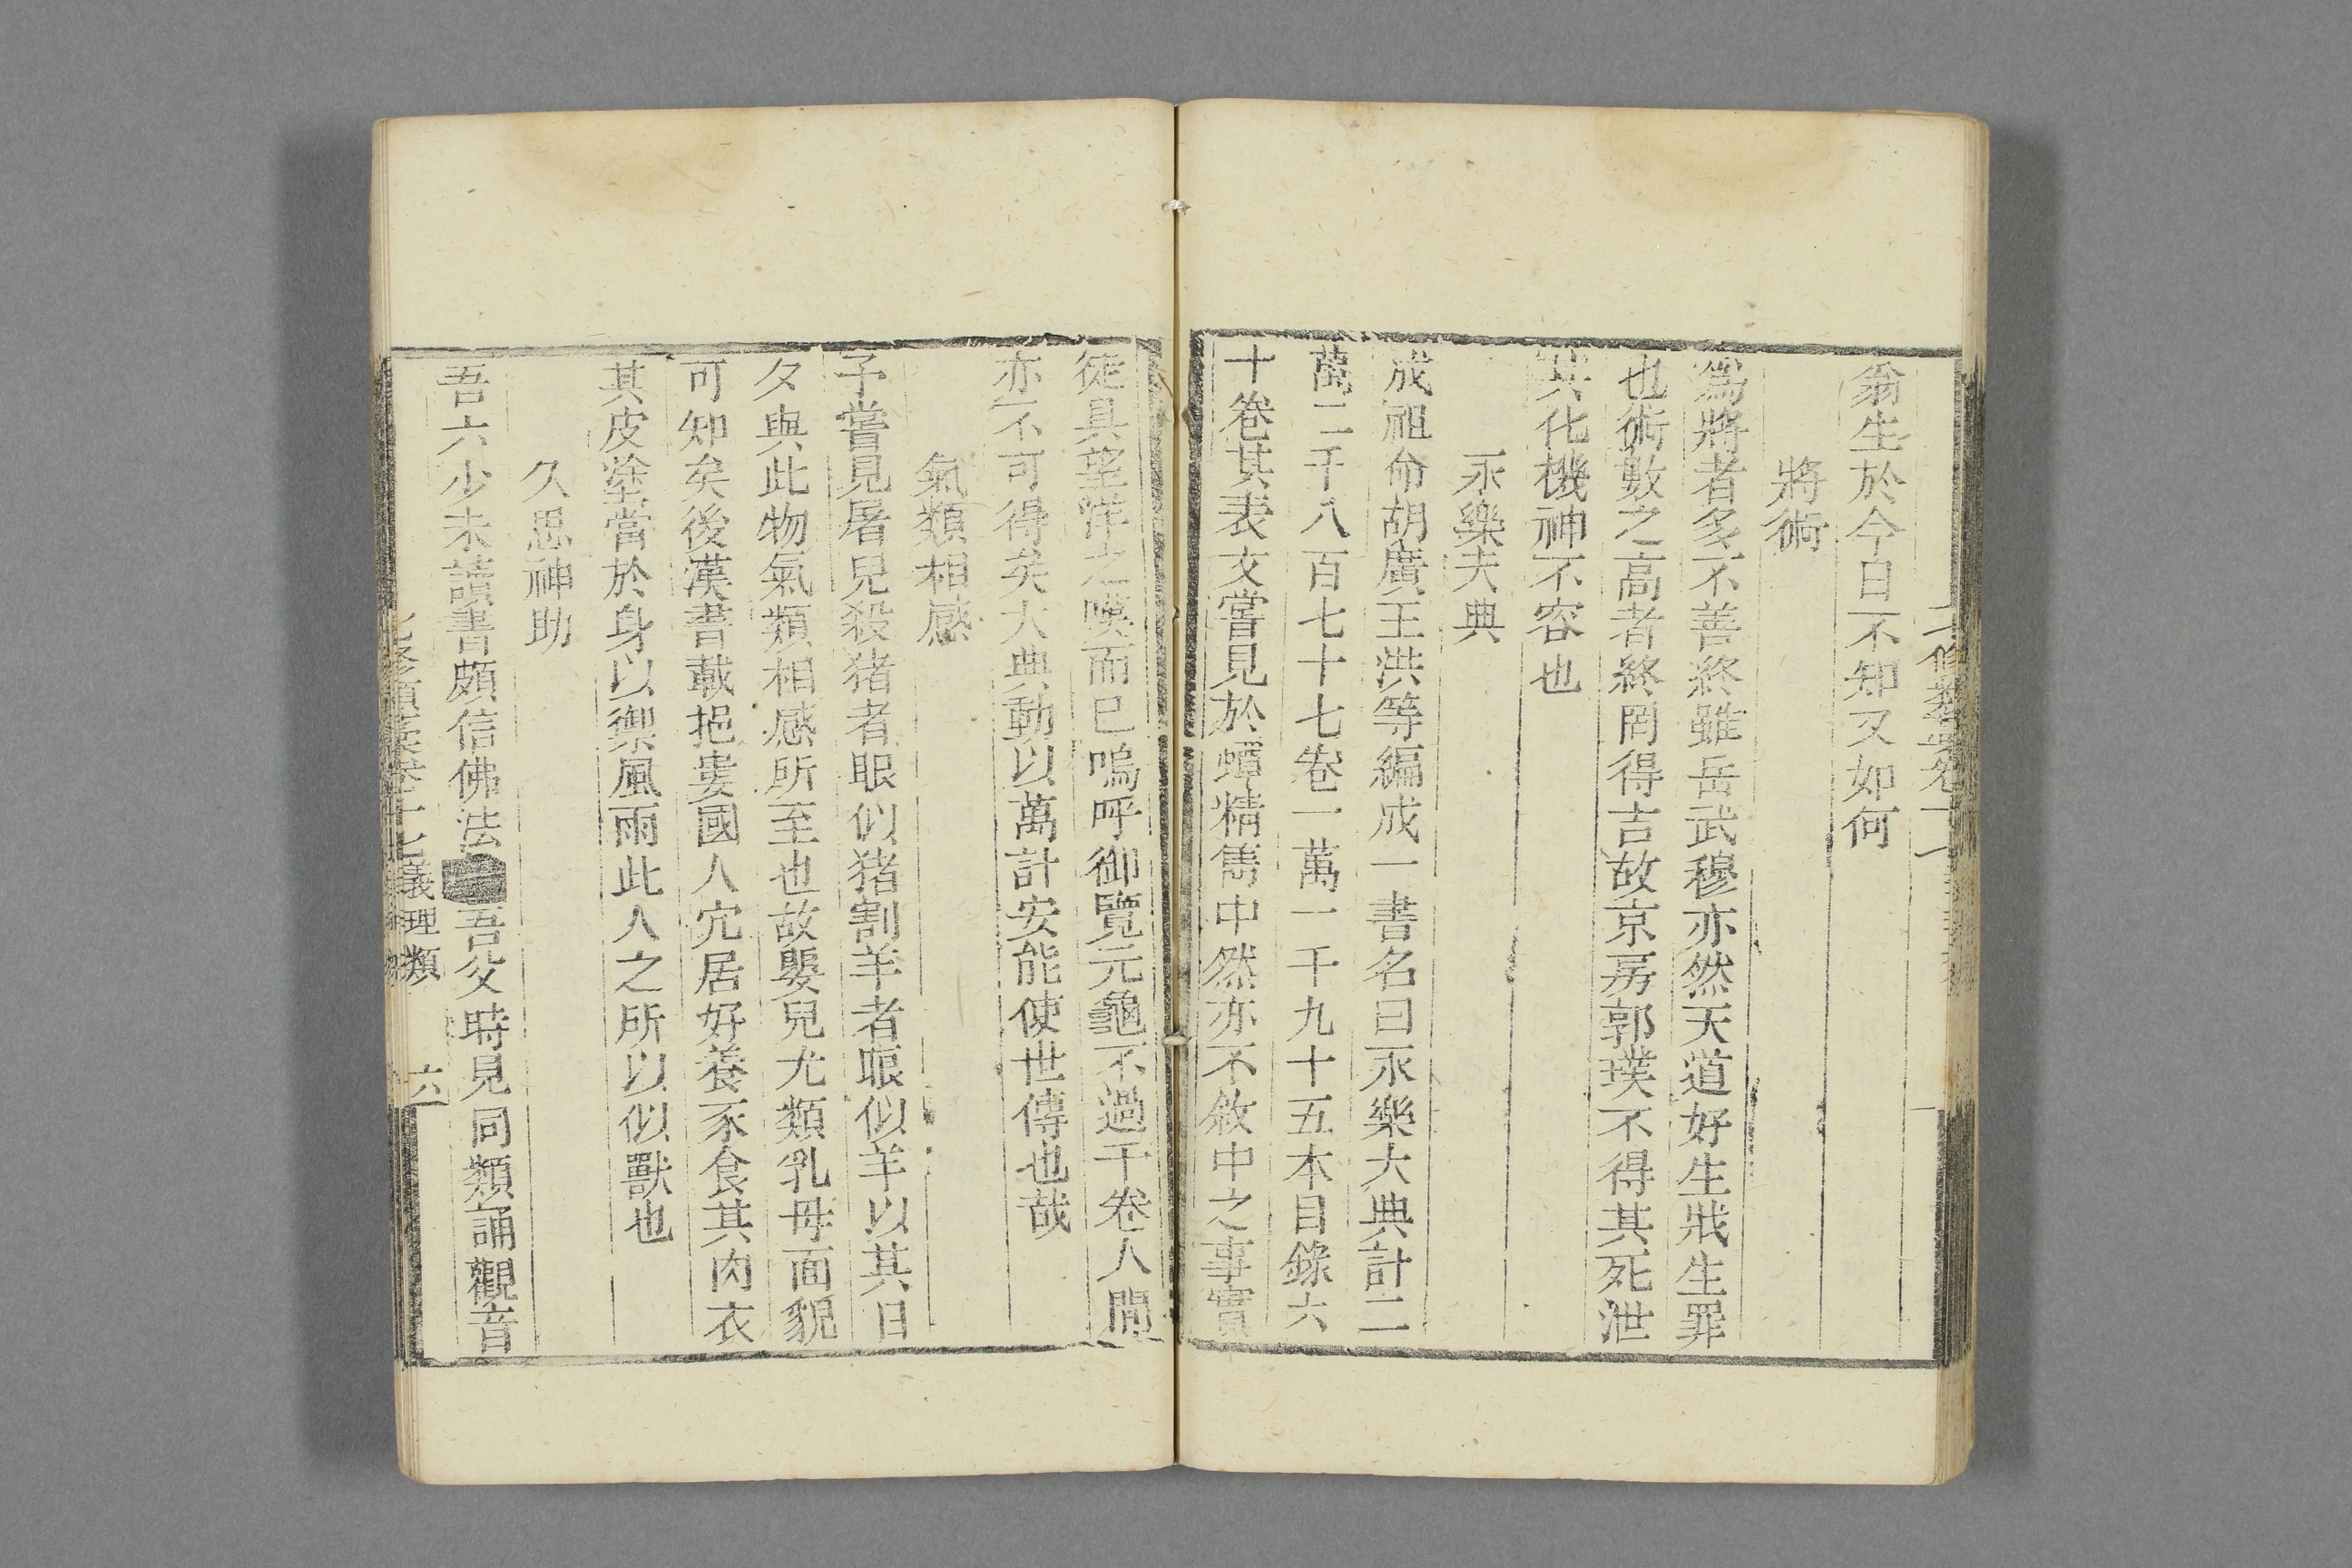 翁生於今日不知又如何
將術
爲將者多不善終雖岳武穆亦然天道好生戕生罪
也術數之高者終罔得吉故京房郭璞不得其死泄
其化機神不容也
永樂大典
成祖命胡廣王洪等編成一書名曰永樂大典計二
萬二千八百七十七卷一萬一千九十五本目錄六
十卷其表文嘗見於蟫精雋中然亦不敘中之事實
徒具望洋之嘆而已嗚呼御覽元龜不過千卷人間
亦不可得矣大典動以萬計安能使世傳也哉
氣類相感
予嘗見屠兒殺猪者眼似猪割羊者眼似羊以其日
夕與此物氣類相感所至也故嬰兒尤類乳母面貌
可知矣後漢書載挹婁國人穴居好養豕食其肉衣
其皮塗膏於身以禦風雨此人之所以似獸也
久思神助
吾六少未讀書頗信佛法吾父時見同類誦觀音
義理類 六